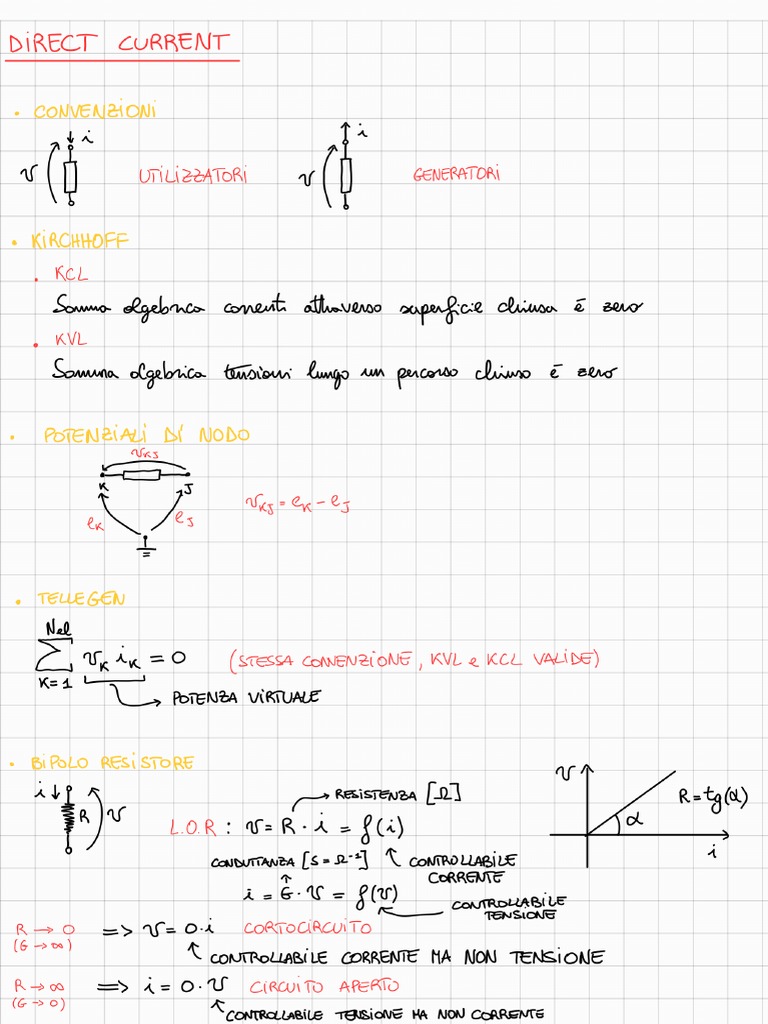 DIRECT CURRENT
• CONVENZIONI
i
v
UTILIZZATORI
i
v
GENERATORI
• KIRCHHOFF
• KCL
Somma algebrica correnti attraverso superficie chiusa è zero
• KVL
Somma algebrica tensioni lungo un percorso chiuso è zero
• POTENZIALI DI NODO
v_KJ
K J
e_K e_J
v_KJ = e_K - e_J
• TELLEGEN
Nel
∑ v_K i_K = 0 (STESSA CONVENZIONE, KVL e KCL VALIDE)
K=1
POTENZA VIRTUALE
• BIPOLO RESISTORE
i
R v
RESISTENZA [Ω]
L.O.R : v = R · i = f(i)
CONDUTTANZA [S = Ω⁻¹] CONTROLLABILE
CORRENTE
i = G · v = f(v)
CONTROLLABILE
TENSIONE
v
R = tg(α)
α
i
R → 0 => v = 0·i CORTOCIRCUITO
(G → ∞)
CONTROLLABILE CORRENTE MA NON TENSIONE
R → ∞ => i = 0 · v CIRCUITO APERTO
(G → 0)
CONTROLLABILE TENSIONE MA NON CORRENTE